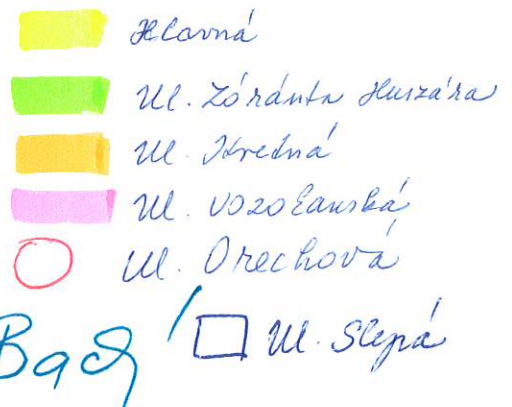 Hlavná
Ul. Zóránta Huszára
Ul. Stredná
Ul. Vozokanská
Ul. Orechová
Ul. Slepá